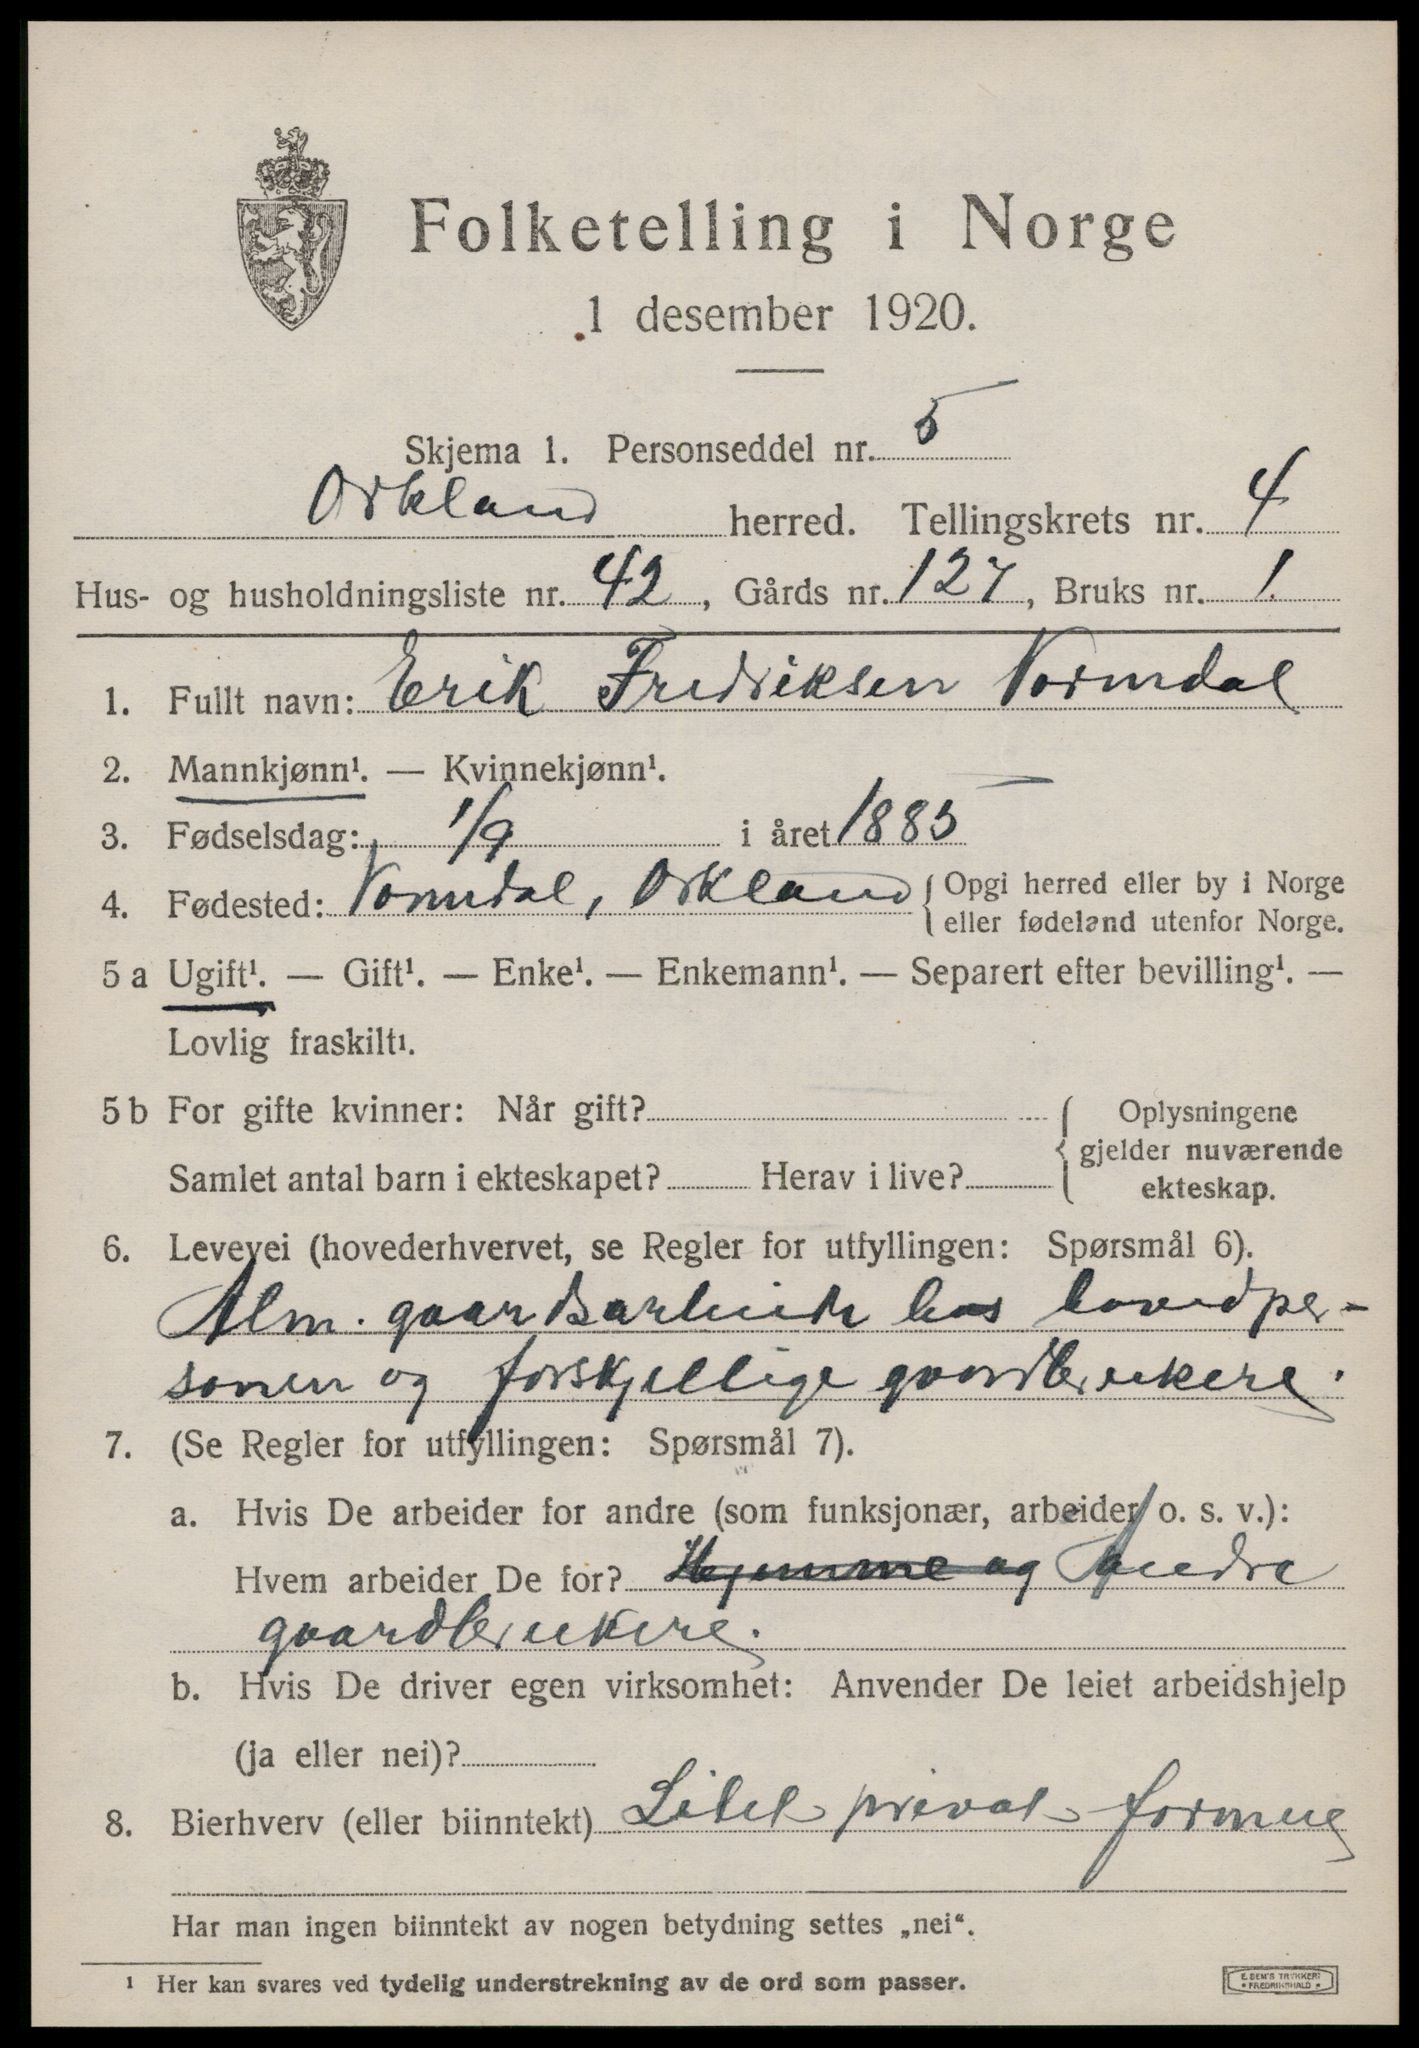 Folketelling i Norge
1 desember 1920.
Skjema 1. Personseddel nr. 5
Orkland herred. Tellingskrets nr. 4
Hus- og husholdningsliste nr. 42, Gårds nr. 127, Bruks nr. 1.
1. Fullt navn: Erik Fredriksen Vormdal
2. Mannkjønn¹. — Kvinnekjønn¹.
3. Fødselsdag: 1/9 i året 1885
4. Fødested: Vormdal, Orkland { Opgi herred eller by i Norge
eller fødeland utenfor Norge.
5 a Ugift¹. — Gift¹. — Enke¹. — Enkemann¹. — Separert efter bevilling¹. —
Lovlig fraskilt¹.
5 b For gifte kvinner: Når gift? Oplysningene
gjelder nuværende
Samlet antal barn i ekteskapet? Herav i live? ekteskap.
6. Levevei (hovederhvervet, se Regler for utfyllingen: Spørsmål 6).
Alm. gaardsarbeide hos hovedper-
sonen og forskjellige gaardbrukere.
7. (Se Regler for utfyllingen: Spørsmål 7).
a. Hvis De arbeider for andre (som funksjonær, arbeider o. s. v.):
Hvem arbeider De for? Hjemme og Andre
gaardbrukere.
b. Hvis De driver egen virksomhet: Anvender De leiet arbeidshjelp
(ja eller nei)?
8. Bierhverv (eller biinntekt) Litet privat formue
Har man ingen biinntekt av nogen betydning settes „nei“.
¹ Her kan svares ved tydelig understrekning av de ord som passer.
E. SEM'S TRYKKERI
* FREDRIKSHALD *